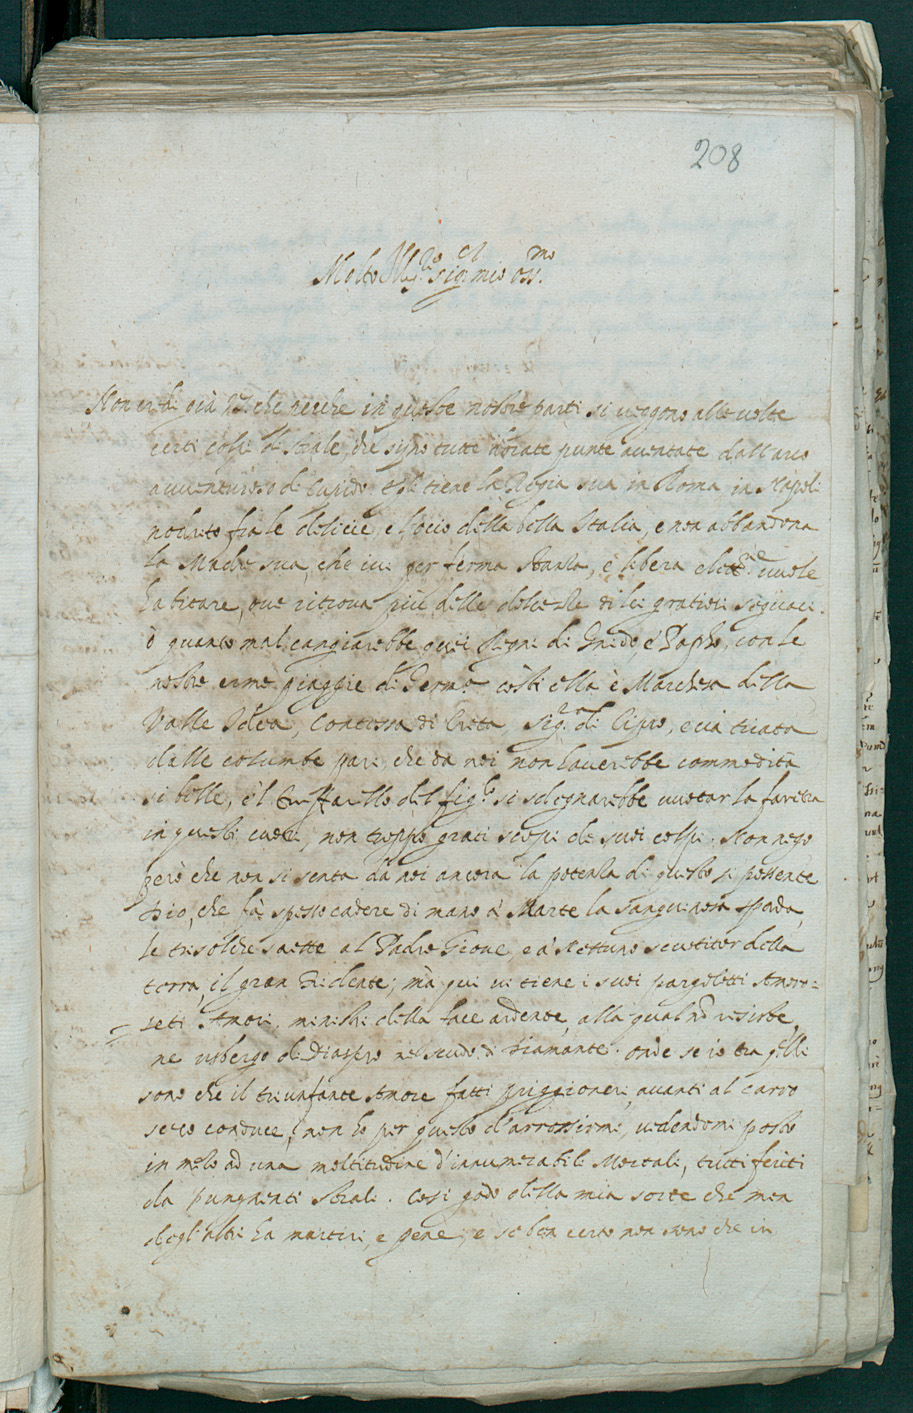 208
Molto Ill.re sig.r mio oss.mo
Non creda già V.S. che perche in queste nostre parti si veggono alle volte
certi colpi di strale, che sijno tutte dorate punte aventate dall'arco
avventuroso di Cupido. Egli tiene la Regia sua in Roma, in Napoli
nodrito fra le delicie, e l'ocio della bella Italia, e non abbandona
la Madre sua, che ivi per ferma stanza, e libera vuole
habitare, ove ritrova più delle dolcezze di lei gratiosi seguaci.
ò quanto mal cangiarebbe quei Regni di Gnido, e Papho, con le
nostre erme piaggie di costi ella è Marchesa della
Valle Idea, Contessa di Creta, Sig.ra di Cipro, e cia tirata
dalle colombe pare, che da noi non haverebbe commodità
si belle, e'l del figlo si sdegnarebbe vuotar la faretra
in questi cuori, non troppo grati scopi de suoi colpi. Non nego
però che non si senta da noi ancora la potenza di questo si possente
Dio, che fà spesso cadere di mano à Marte la sanguinosa spada,
le trisolche saette al Padre Giove, e à Nettuno scuotitor della
terra, il gran Tridente; mà qui vi tiene i suoi pargoletti Amor=
= retti Amori, ministri della face ardente, alla qual nō resiste,
ne usbergo di Diaspro ne scudo di Diamante. onde se io tra q̄lli
sono che il triunfante Amore fatti priggioneri, avanti al carro
seco conduce, non ho per questo d'arrossirmi, vedendomi posto
in mezo ad una moltitudine d'innumerabili Mortali, tutti feriti
da pungenti strali. Cosi godo della mia sorte che men
degl'altri ha martiri, e pene, e se ben certo non sono che in